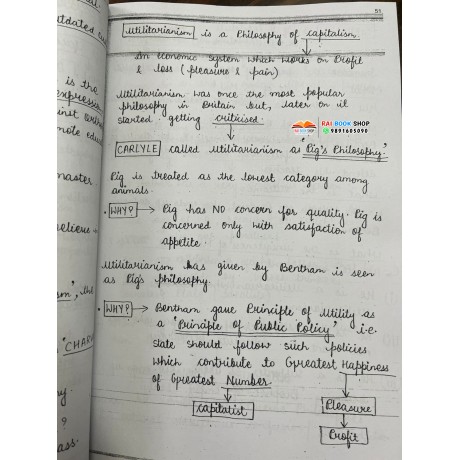 51
Utilitarianism is a Philosophy of capitalism.
An economic system which works on Profit
& loss (pleasure & pain)
Utilitarianism was once the most popular
philosophy in Britain but, later on it
started getting criticised
RAI BOOK SHOP
9891605090
CARLYLE called utilitarianism as "Pig's Philosophy"
Pig is treated as the lowest category among
animals.
WHY? Pig has NO concern for quality. Pig is
concerned only with satisfaction of
appetite.
Utilitarianism has given by Bentham is seen
as Pig's philosophy
WHY? Bentham gave Principle of Utility as
a "Principle of Public Policy" i.e
state should follow such policies
which contribute to Greatest Happiness
of Greatest Number.
capitalist
Pleasure
Profit
is the
expression
master
believes
, the
"CHAR
?